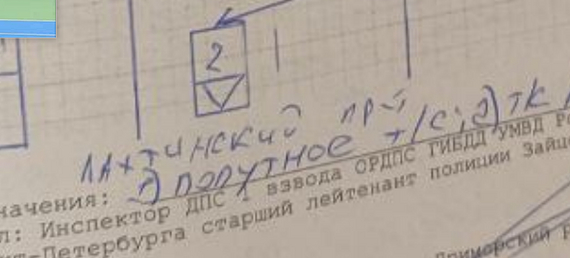 2
ЛАХТИНСКИЙ ПР-Т
1) ПОПУТНОЕ Т/С; 2) ТК
начения:
л: Инспектор ДПС 1 взвода ОРДПС ГИБДД УМВД
кт-Петербурга старший лейтенант полиции Зайц
Приморский